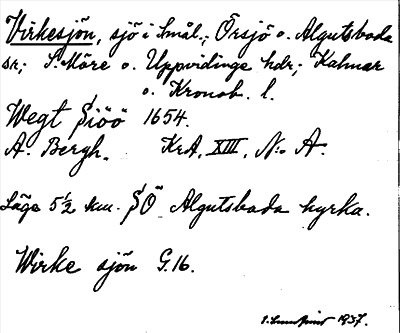 Virkesjön, sjö i Smål.; Örsjö o. Algutsboda
sn; S. Möre o. Uppvidinge hdr; Kalmar
o. Kronob. l.
Wegt Siöö 1654.
A. Bergh. KrA, XIII, N:o A.
Läge 5½ km. SÖ Algutsboda kyrka.
Wirke sjön G.16.
1937.